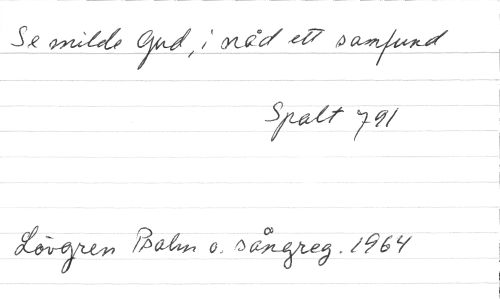 Se milde Gud, i nåd ett samfund
Spalt 791
Lövgren Psalm o. sångreg. 1964